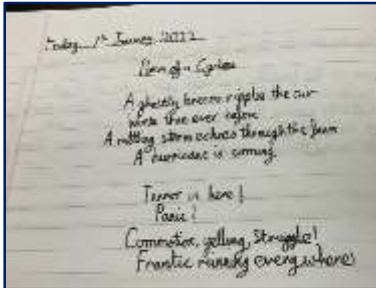 Today, 1st January 2022
Poem of a Cyclone
A ghostly breeze ripples the air
worse than ever before
A rattling storm echoes through the
A hurricane is coming.
Terror is here!
Panic!
Commotion, yelling, struggle!
Frantic running everywhere!